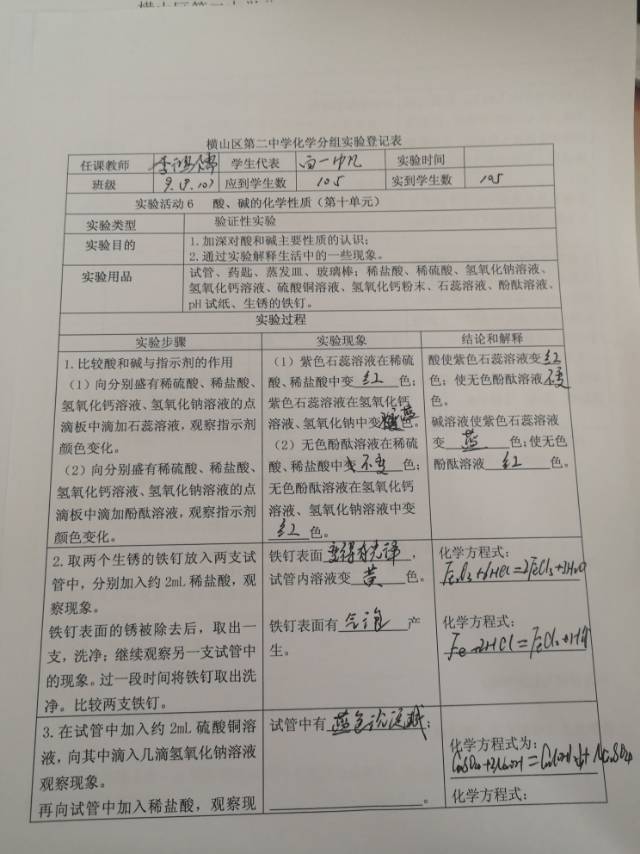 横山区第二中学化学分组实验登记表
任课教师 学生代表 实验时间
班级 应到学生数 105 实到学生数 105
实验活动6 酸、碱的化学性质（第十单元）
实验类型 验证性实验
实验目的 1.加深对酸和碱主要性质的认识；
2.通过实验解释生活中的一些现象。
实验用品 试管、药匙、蒸发皿、玻璃棒；稀盐酸、稀硫酸、氢氧化钠溶液、
氢氧化钙溶液、硫酸铜溶液、氢氧化钙粉末、石蕊溶液、酚酞溶液、
pH试纸、生锈的铁钉。
实验过程
实验步骤 实验现象 结论和解释
1.比较酸和碱与指示剂的作用
（1）向分别盛有稀硫酸、稀盐酸、
氢氧化钙溶液、氢氧化钠溶液的点
滴板中滴加石蕊溶液，观察指示剂
颜色变化。
（2）向分别盛有稀硫酸、稀盐酸、
氢氧化钙溶液、氢氧化钠溶液的点
滴板中滴加酚酞溶液，观察指示剂
颜色变化。
（1）紫色石蕊溶液在稀硫
酸、稀盐酸中变 红 色；
紫色石蕊溶液在氢氧化钙
溶液、氢氧化钠中变 蓝 色。
（2）无色酚酞溶液在稀硫
酸、稀盐酸中 不变 色；
无色酚酞溶液在氢氧化钙
溶液、氢氧化钠溶液中变
红 色。
酸使紫色石蕊溶液变 红
色；使无色酚酞溶液 不变
色。
碱溶液使紫色石蕊溶液
变 蓝 色；使无色
酚酞溶液 红 色。
2.取两个生锈的铁钉放入两支试
管中，分别加入约2mL稀盐酸，观
察现象。
铁钉表面的锈被除去后，取出一
支，洗净；继续观察另一支试管中
的现象。过一段时间将铁钉取出洗
净。比较两支铁钉。
铁钉表面 变得有光泽，
试管内溶液变 黄 色。
铁钉表面有 气泡 产
生。
化学方程式：
Fe2O3+6HCl=2FeCl3+3H2O
化学方程式：
3.在试管中加入约2mL硫酸铜溶
液，向其中滴入几滴氢氧化钠溶液
观察现象。
再向试管中加入稀盐酸，观察现
试管中有 蓝色沉淀 ；
。
化学方程式为：
化学方程式：